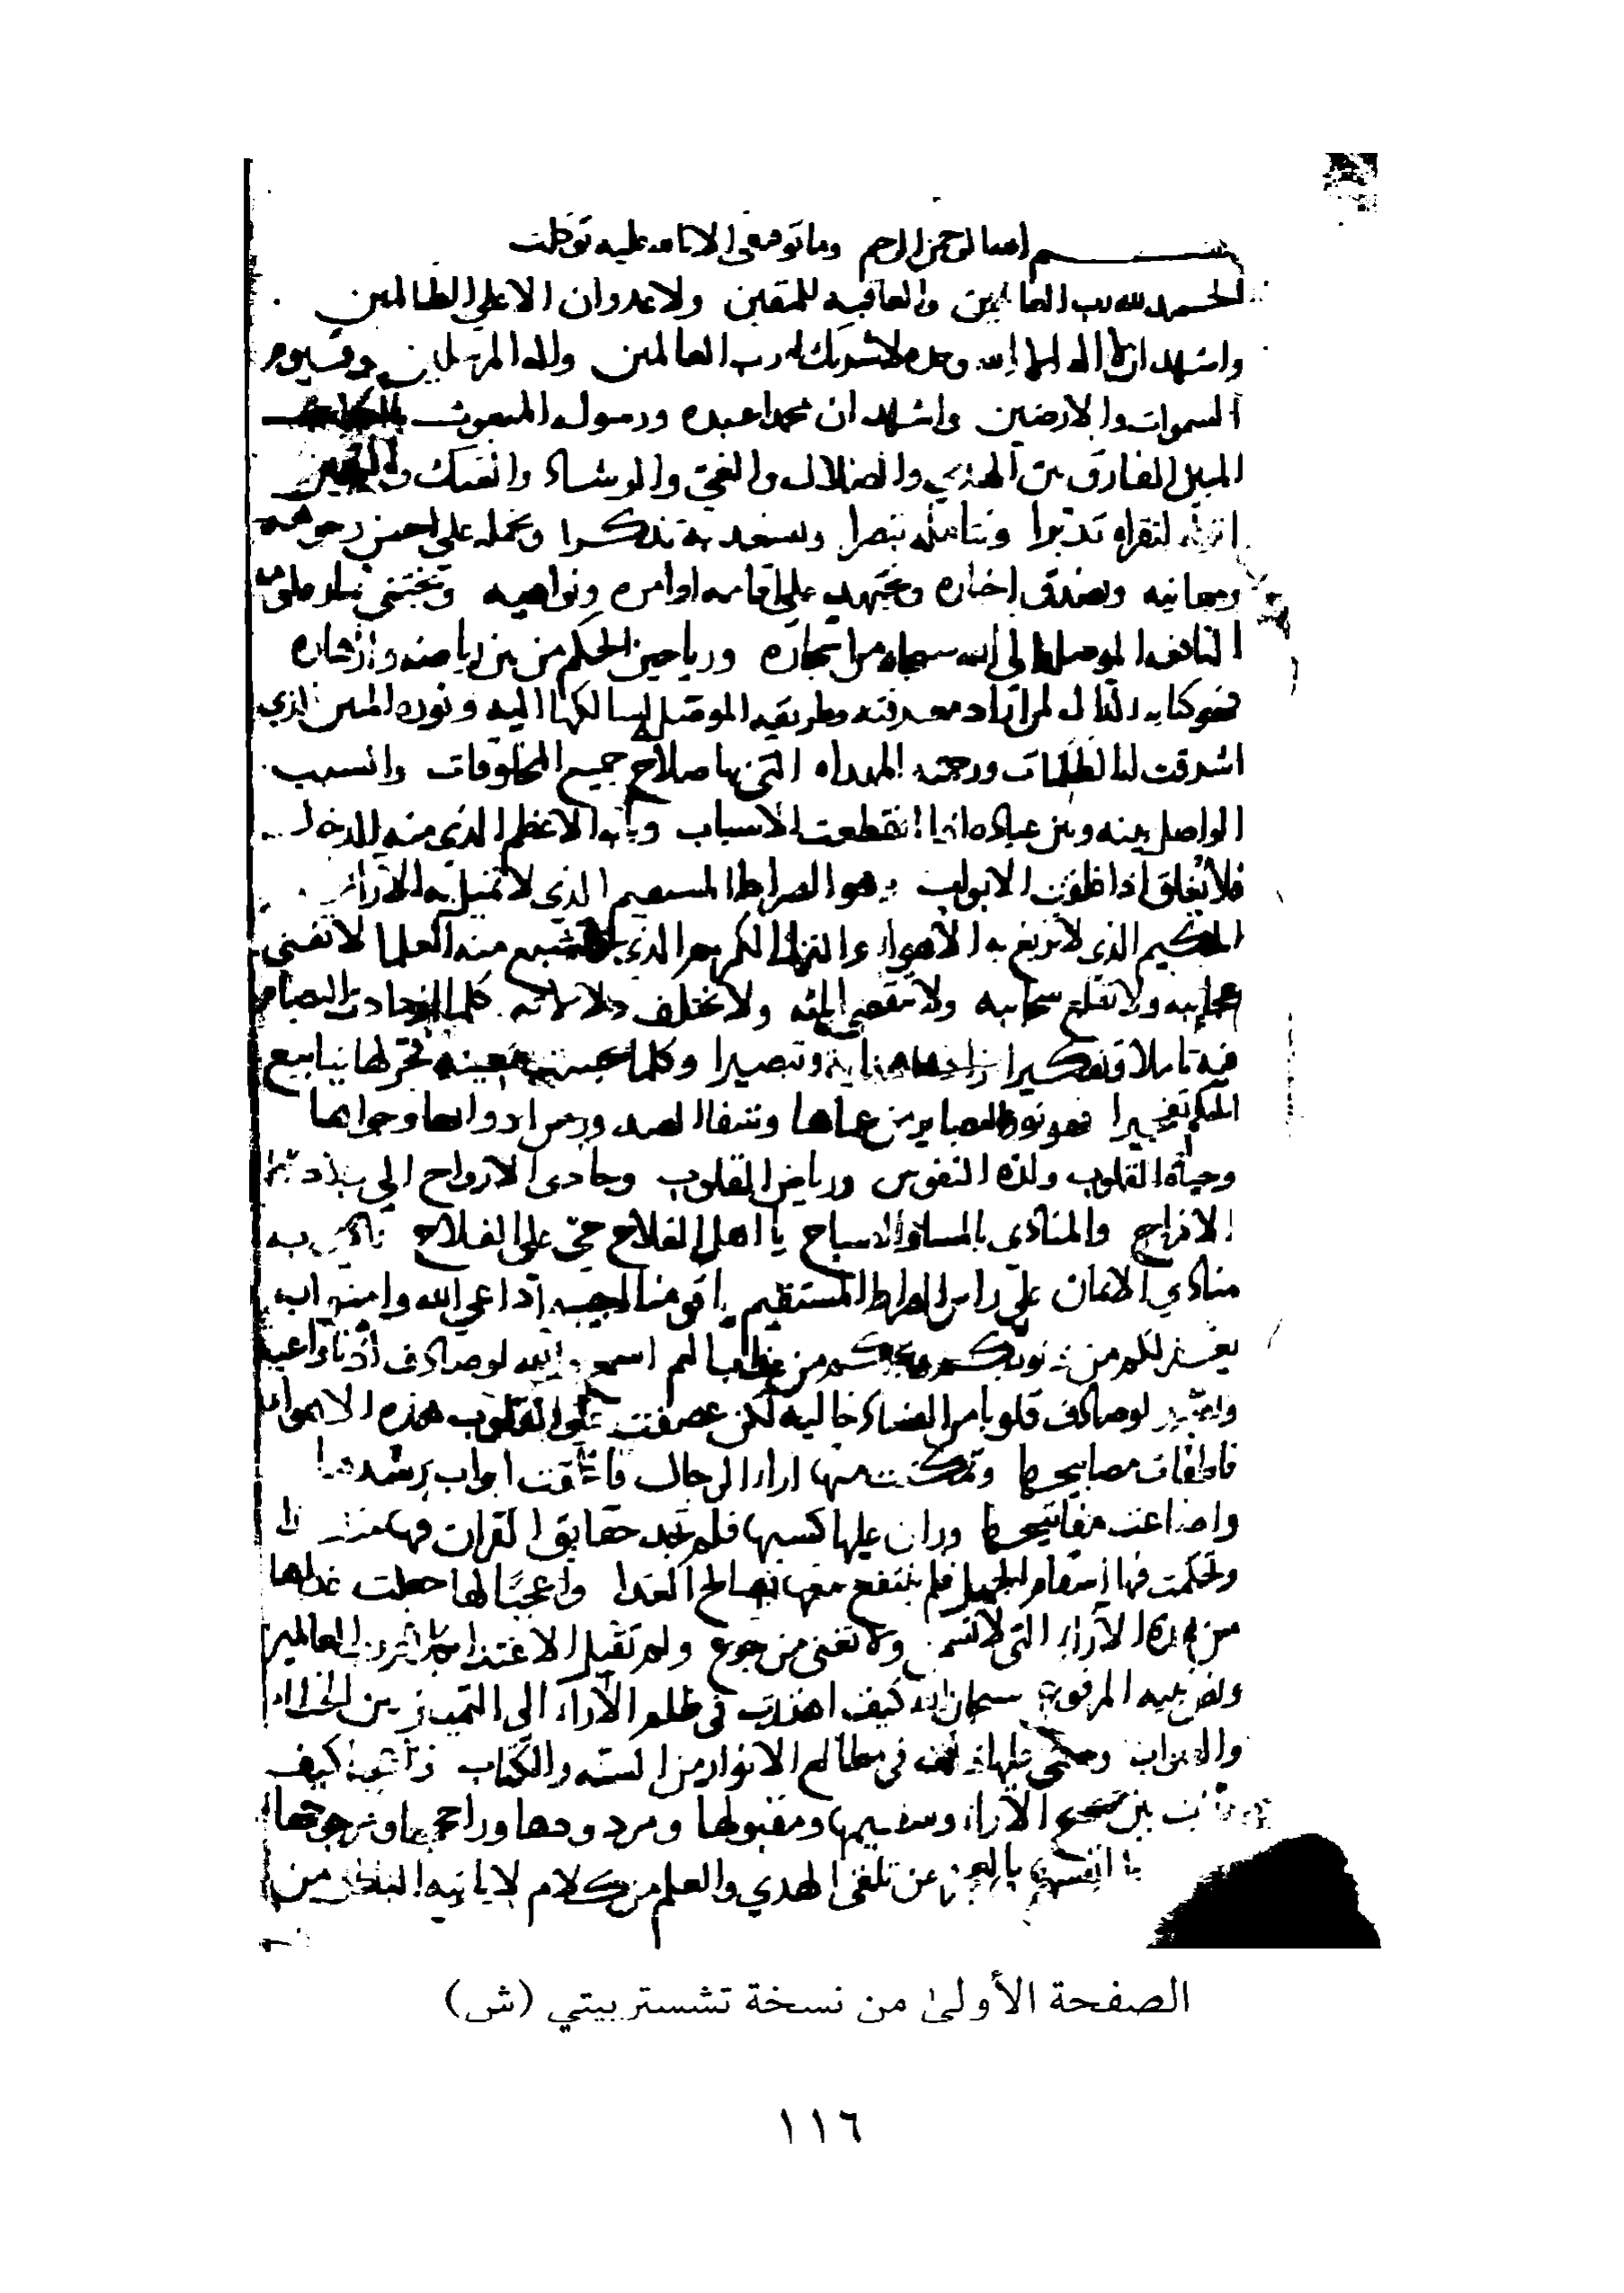 بسم الله الرحمن الرحيم وما توفيقي الا بالله عليه توكلت
الحمد لله رب العالمين والعاقبه للمتقين ولا عدوان الا علي الظالمين
واشهد ان لا اله الا الله وحده لا شريك له رب العالمين واله المرسلين وقيوم
السموات والارضين واشهد ان محمدا عبده ورسوله المبعوث بالكتاب
المبين الفارق بين الهدي والضلال والغي والرشاد والشك واليقين
انزله لنقراه تدبرا ونتامله تبصرا ونسعد به تذكرا ونحمله علي احسن وجوهه
ومعانيه ونصدق اخباره ونجتهد علي اقامه اوامره ونواهيه ونجتني ثمار علومه
النافعه الموصله الي الله سبحانه من اشجاره ورياحين الحكم من بين رياضه وازهاره
فهو كتابه الدال لمن اراد معرفته وطريقه الموصل لسالكها اليه ونوره المبين الذي
اشرقت له الظلمات ورحمته المهداه التي بها صلاح جميع المخلوقات والسبب
الواصل بينه وبين عباده اذا انقطعت الاسباب وبابه الاعظم الذي منه الدخول
فلا يغلق اذا غلقت الابواب وهو الصراط المستقيم الذي لا تميل به الاراء
الحكيم الذي لا تزيغ به الاهواء والنزل الكريم الذي لا يشبع منه العلما لا تفني
عجايبه ولا تقلع سحايبه ولا تنقضي اياته ولا تختلف دلالاته كلما ازدادت البصاير
فيه تاملا وتفكيرا زادها هدايه وتبصيرا وكلما بجست معينه فجر لها ينابيع
الحكم تفجيرا فهو نور البصاير من عماها وشفاء الصدور من ادوائها وجواها
وحياه القلوب ولذه النفوس ورياض القلوب وحادي الارواح الي بلاد
الافراح والمنادي بالمساء والاصباح يا اهل الفلاح حي علي الفلاح نادي به
منادي الايمان علي راس الصراط المستقيم يا قومنا اجيبوا داعي الله وامنوا به
يغفر لكم من ذنوبكم ويجركم من عذاب اليم اسمع والله لو صادف اذنا واعيه
وابصر لو صادف قلوبا من الفساد خاليه لكن عصفت علي القلوب هذه الاهواء
فاطفات مصابيحها وتمكنت منها اراء الرجال فاغلقت ابواب رشدها
واضاعت مفاتيحها وران عليها كسبها فلم تجد حقايق القران فيها منفذا
وتحكمت فيها اسقام الجهل فلم ينتفع معها بصالح الغذا واعجبا لها جعلت غذاها
من هذه الاراء التي لا تسمن ولا تغني من جوع ولم تقبل الاغتذا بكلام رب العالمين
ونص نبيه المرفوع سبحان الله كيف اهتدت في ظلم الاراء الي التمييز بين الخطا
والصواب وخفي عليها ذلك في مطالع الانوار من السنه والكتاب واعجبا كيف
ميزت بين صحيح الاراء وسقيمها ومقبولها ومردودها وراجحها ومرجوحها
انفسهم بالعجز عن تلقي الهدي والعلم من كلام لا ياتيه الباطل من
الصفحة الأولىٰ من نسخة تشستربيتي (ش)
١١٦